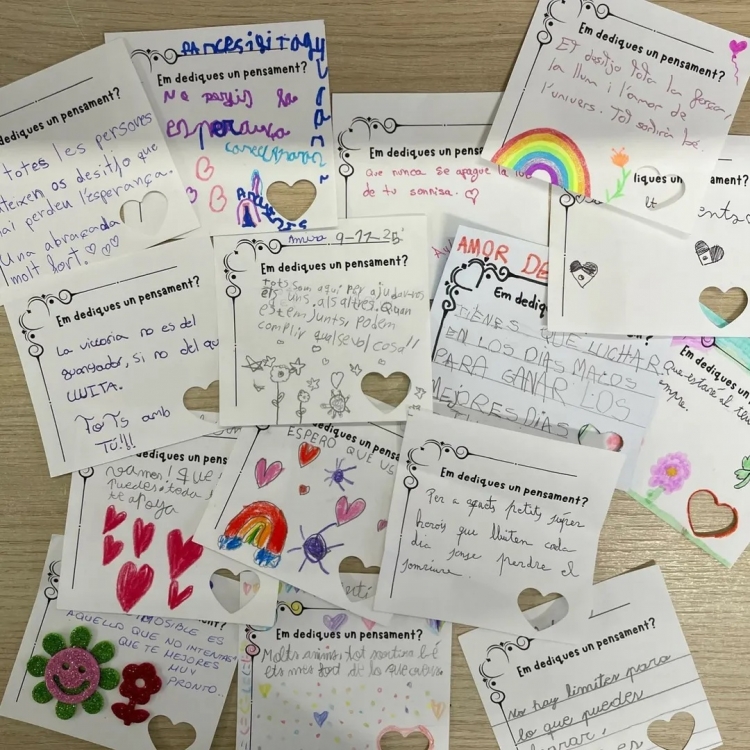 dediques un pensament?
totes les persones
os desitjo que
mai perdeu l'esperança.
Una abraçada
molt fort.
Em dediques un pensament?
No perdis la
esperança
Em dediques un pensa
que nunca se apague la luz
de tu sonrisa.
Em dediques un pensament?
Et desitjo tota la força,
la llum i l'amor de
l'univers. Tot sortirà bé.
liques un
ament?
Em dediques un pensament?
La victoria no es del
guanyador, si no del que
LLUITA.
ToTs amb
TU!!!
9-11-25
Em dediques un pensament?
Tots som aquí per ajudar-nos
els uns als altres. Quan
estem junts, podem
complir qualsevol cosa!!
AMOR DE
Em dediq
TIENES QUE LUCHAR
EN LOS DIAS MALOS
PARA GANAR LOS
MEJORES DIAS
dediques un
Que estaré al teu
empre.
ques un pens
vamos! Que
puedes toda
te apoya
dediques un pensa
ESPERO QUE US
Em dediques un pensament?
Per a aquets petits súper
herois que lluiten cada
dia sense perdre el
somriure.
ament?
IMPOSIBLE ES
AQUELLO QUE NO INTENTAS
QUE TE MEJORES
MUY
PRONTO...
Em dediques un pensament?
Molts anims tot sortira bé
Ets mes fort de lo que creus.
Em dediques un pensament?
No hay limites para
lo que puedes